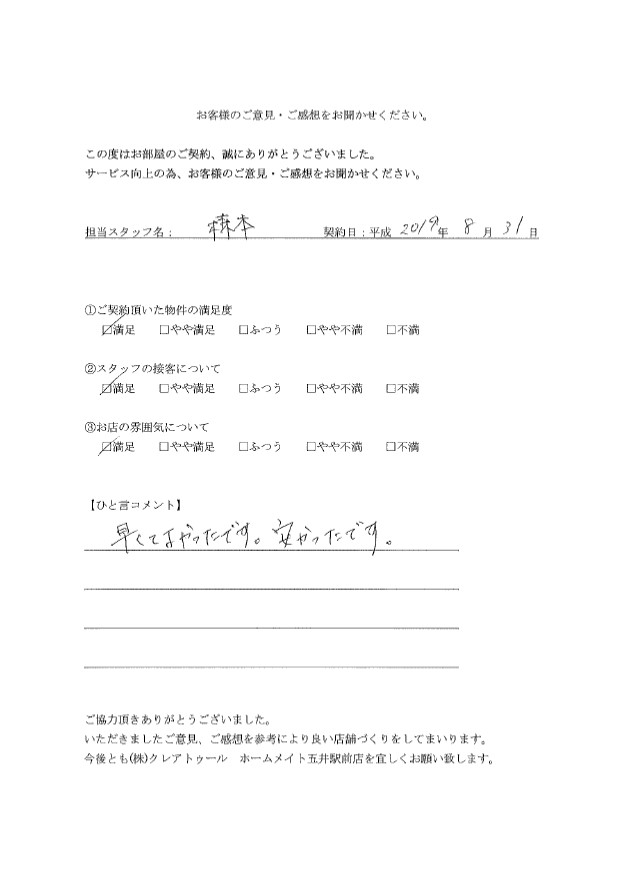 お客様のご意見・ご感想をお聞かせください。
この度はお部屋のご契約、誠にありがとうございました。
サービス向上の為、お客様のご意見・ご感想をお聞かせください。
担当スタッフ名： 契約日：平成 2019年 8月 31日
①ご契約頂いた物件の満足度
☑満足 □やや満足 □ふつう □やや不満 □不満
②スタッフの接客について
☑満足 □やや満足 □ふつう □やや不満 □不満
③お店の雰囲気について
☑満足 □やや満足 □ふつう □やや不満 □不満
【ひと言コメント】
早くてよかったです。安かったです。
ご協力頂きありがとうございました。
いただきましたご意見、ご感想を参考により良い店舗づくりをしてまいります。
今後とも(株)クレアトゥール ホームメイト五井駅前店を宜しくお願い致します。